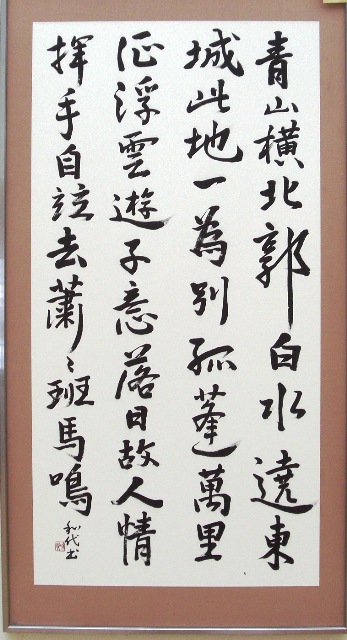 青山横北郭白水遶東
城此地一為別孤蓬萬里
征浮雲遊子意落日故人情
揮手自茲去蕭々班馬鳴
和代書